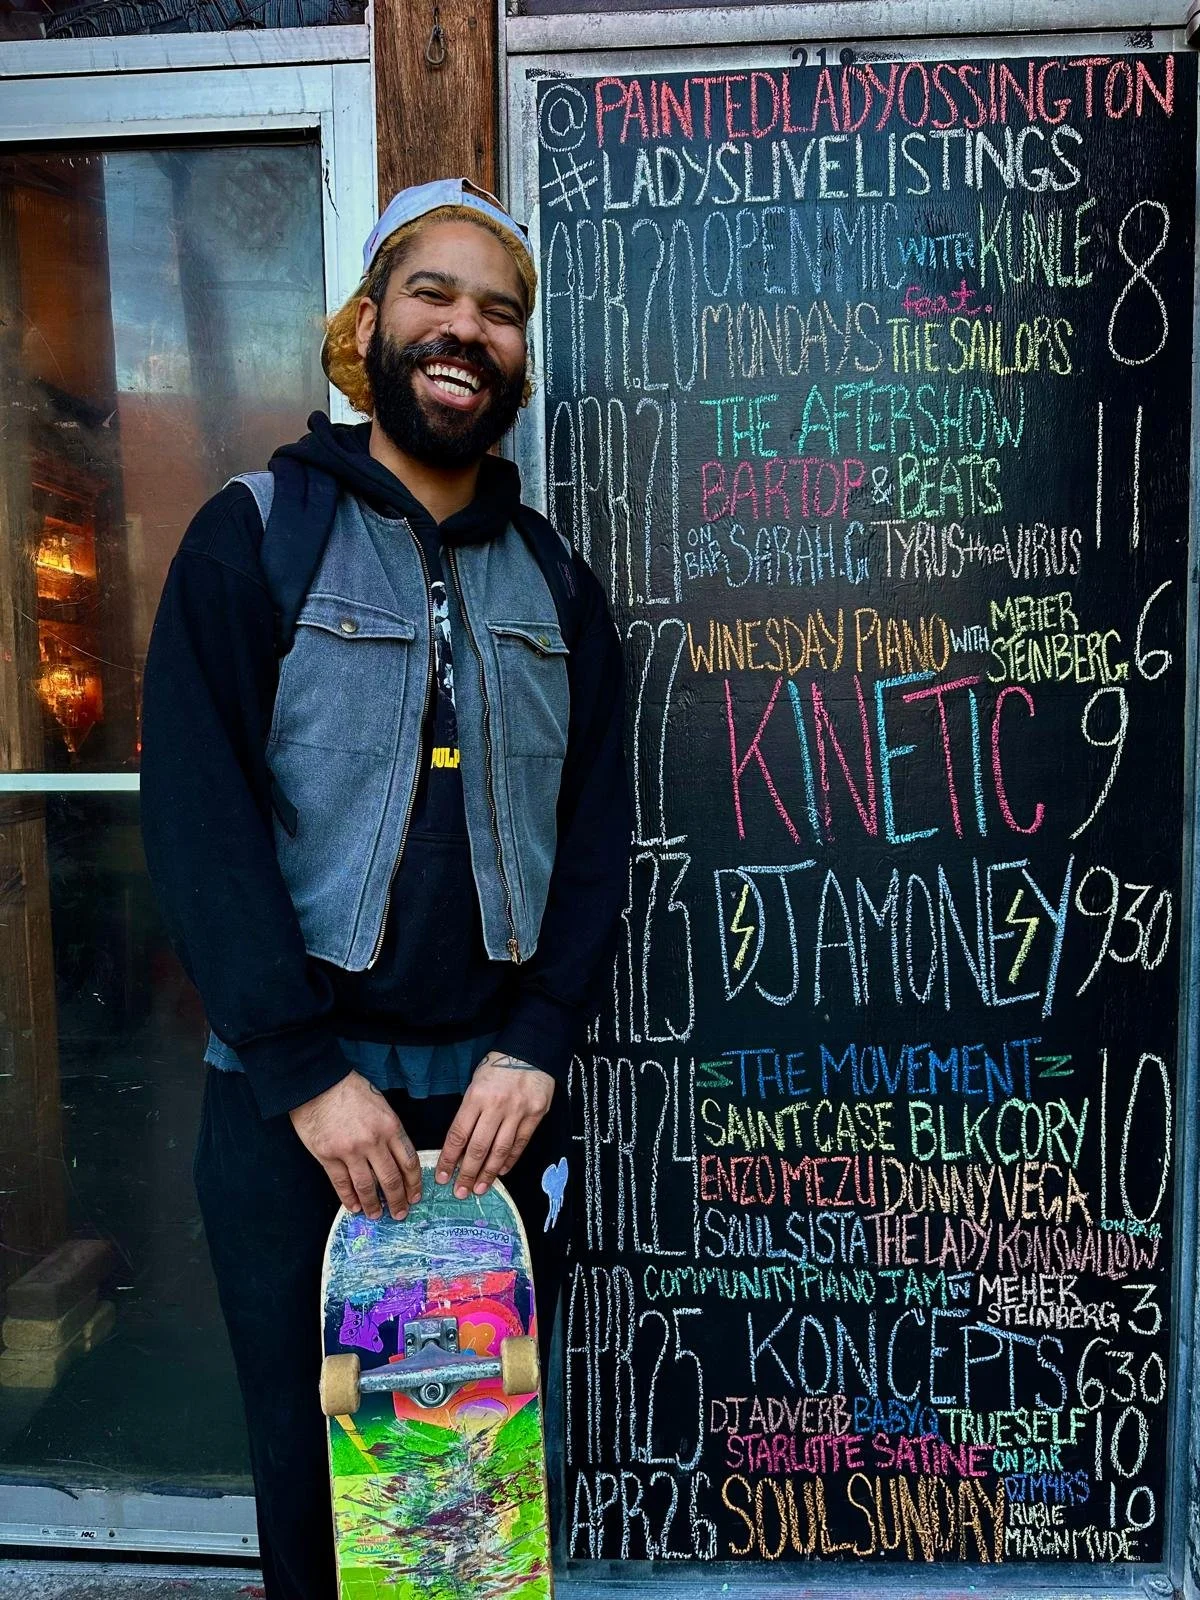 218
@PAINTEDLADYOSSINGTON
#LADYSLIVELISTINGS
APR.20 OPEN MIC WITH KUNLE 8
MONDAYS feat. THE SAILORS
APR.21 THE AFTERSHOW 11
BARTOP & BEATS
ON BAR SARAH.G TYRUS the VIRUS
22 WINESDAY PIANO WITH MEHER STEINBERG 6
KINETIC 9
R.23 DJ AMONEY 930
APR.24 THE MOVEMENT 10
SAINT CASE BLK CORY
ENZO MEZU DONNY VEGA
SOUL SISTA THE LADY KONSWALLOW ON BAR
APR.25 COMMUNITY PIANO JAM W MEHEK STEINBERG 3
KONCEPTS 630
DJ ADVERB BABYQ TRUESELF 10
STARLOTTE SATINE ON BAR
APR.26 SOUL SUNDAY DJ M4RS 10
RUBIE
MAGNITUDE
PULP